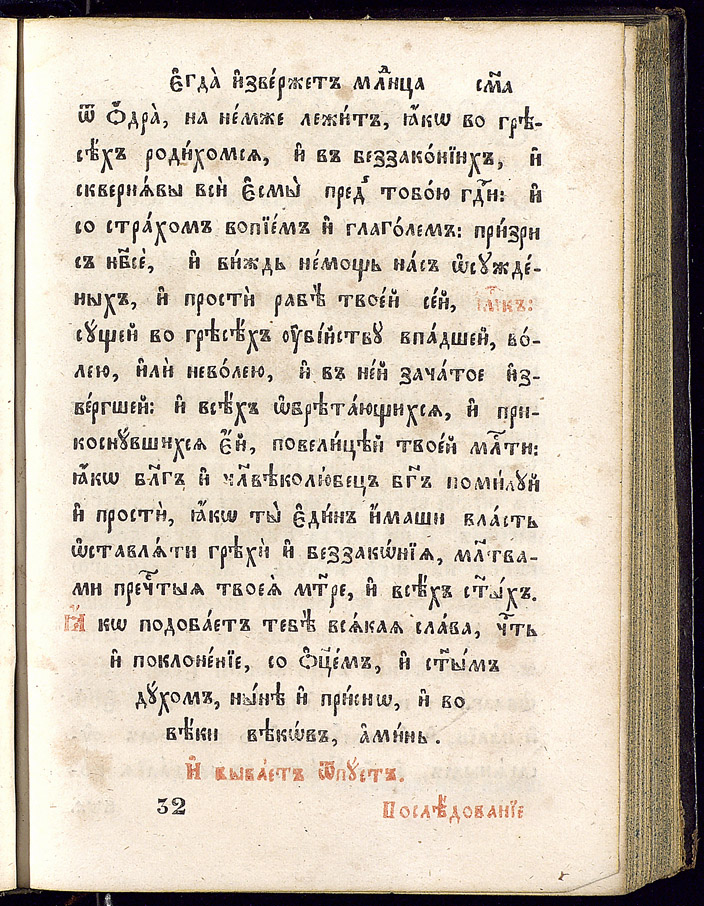 Є҆гда̀ и҆зве́ржетъ млⷣнца сма
ѿ Ѻ҆дра̀, на не́мже лежи́тъ, ꙗ҆́кѡ во грѣ-
сѣ́хъ роди́хомсѧ, и҆ въ беззако́нїихъ, и҆
скверна́вы всѝ є҆смы̀ пред̾ тобо́ю гдⷭ҇и: и҆
со стра́хомъ вопїе́мъ и҆ глаго́лемъ: при́зри
съ нб҃сѐ, и҆ ви́ждь не́мощь на́съ ѡ҆сꙋжде́-
ныхъ, и҆ простѝ рабѣ̀ твое́й се́й, и҆мⷦ҇къ:
сꙋщей во грѣсѣ́хъ ᲂу҆бі́йствꙋ впа́дшей, во́-
лею, и҆лѝ нево́лею, и҆ въ не́й зача́тое и҆з-
ве́ргшей: и҆ всѣ́хъ ѡ҆брѣта́ющихсѧ, и҆ при-
коснꙋ́вшихсѧ є҆́й, повели́цѣй твое́й млⷭ҇ти:
ꙗ҆́кѡ бл҃гъ и҆ чл҃вѣколю́бецъ бг҃ъ поми́лꙋй
и҆ простѝ, ꙗ҆́кѡ ты̀ є҆ди́нъ и҆́маши вла́сть
ѡ҆ставлѧ́ти грѣхѝ и҆ беззакѡ́нїѧ, мл҃тва-
ми пречⷭ҇тыѧ твоеѧ̀ мт҃ре, и҆ всѣ́хъ ст҃ы́хъ.
Ꙗ҆́ кѡ подоба́етъ тебѣ̀ всѧ́каѧ сла́ва, чⷭ҇ть
и҆ поклоне́нїе, со ѻ҆ц҃е́мъ, и҆ ст҃ы́мъ
дꙋ́хомъ, ны́нѣ и҆ при́снѡ, и҆ во
вѣ́ки вѣкѡ́въ, а҆ми́нь.
И҆ быва́етъ ѿпꙋ́стъ.
32 Послѣ́дованїе